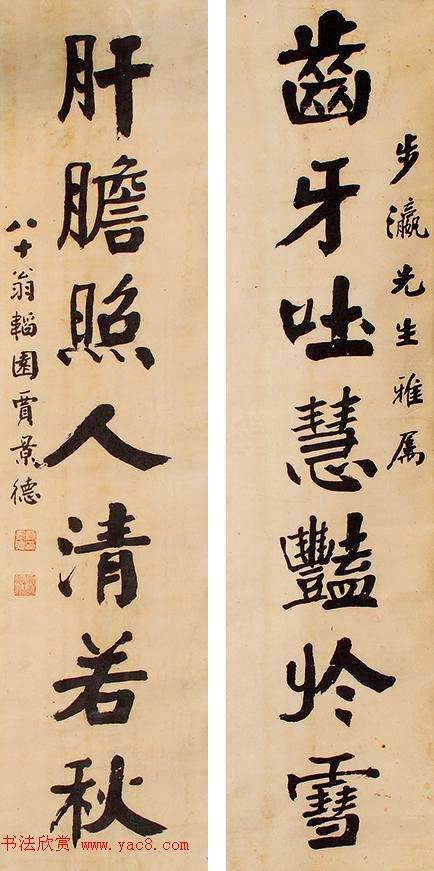 步瀛先生雅属
齒牙吐慧豔於雪
肝膽照人清若秋
八十翁韜園賈景德
书法欣赏 www.yac8.com